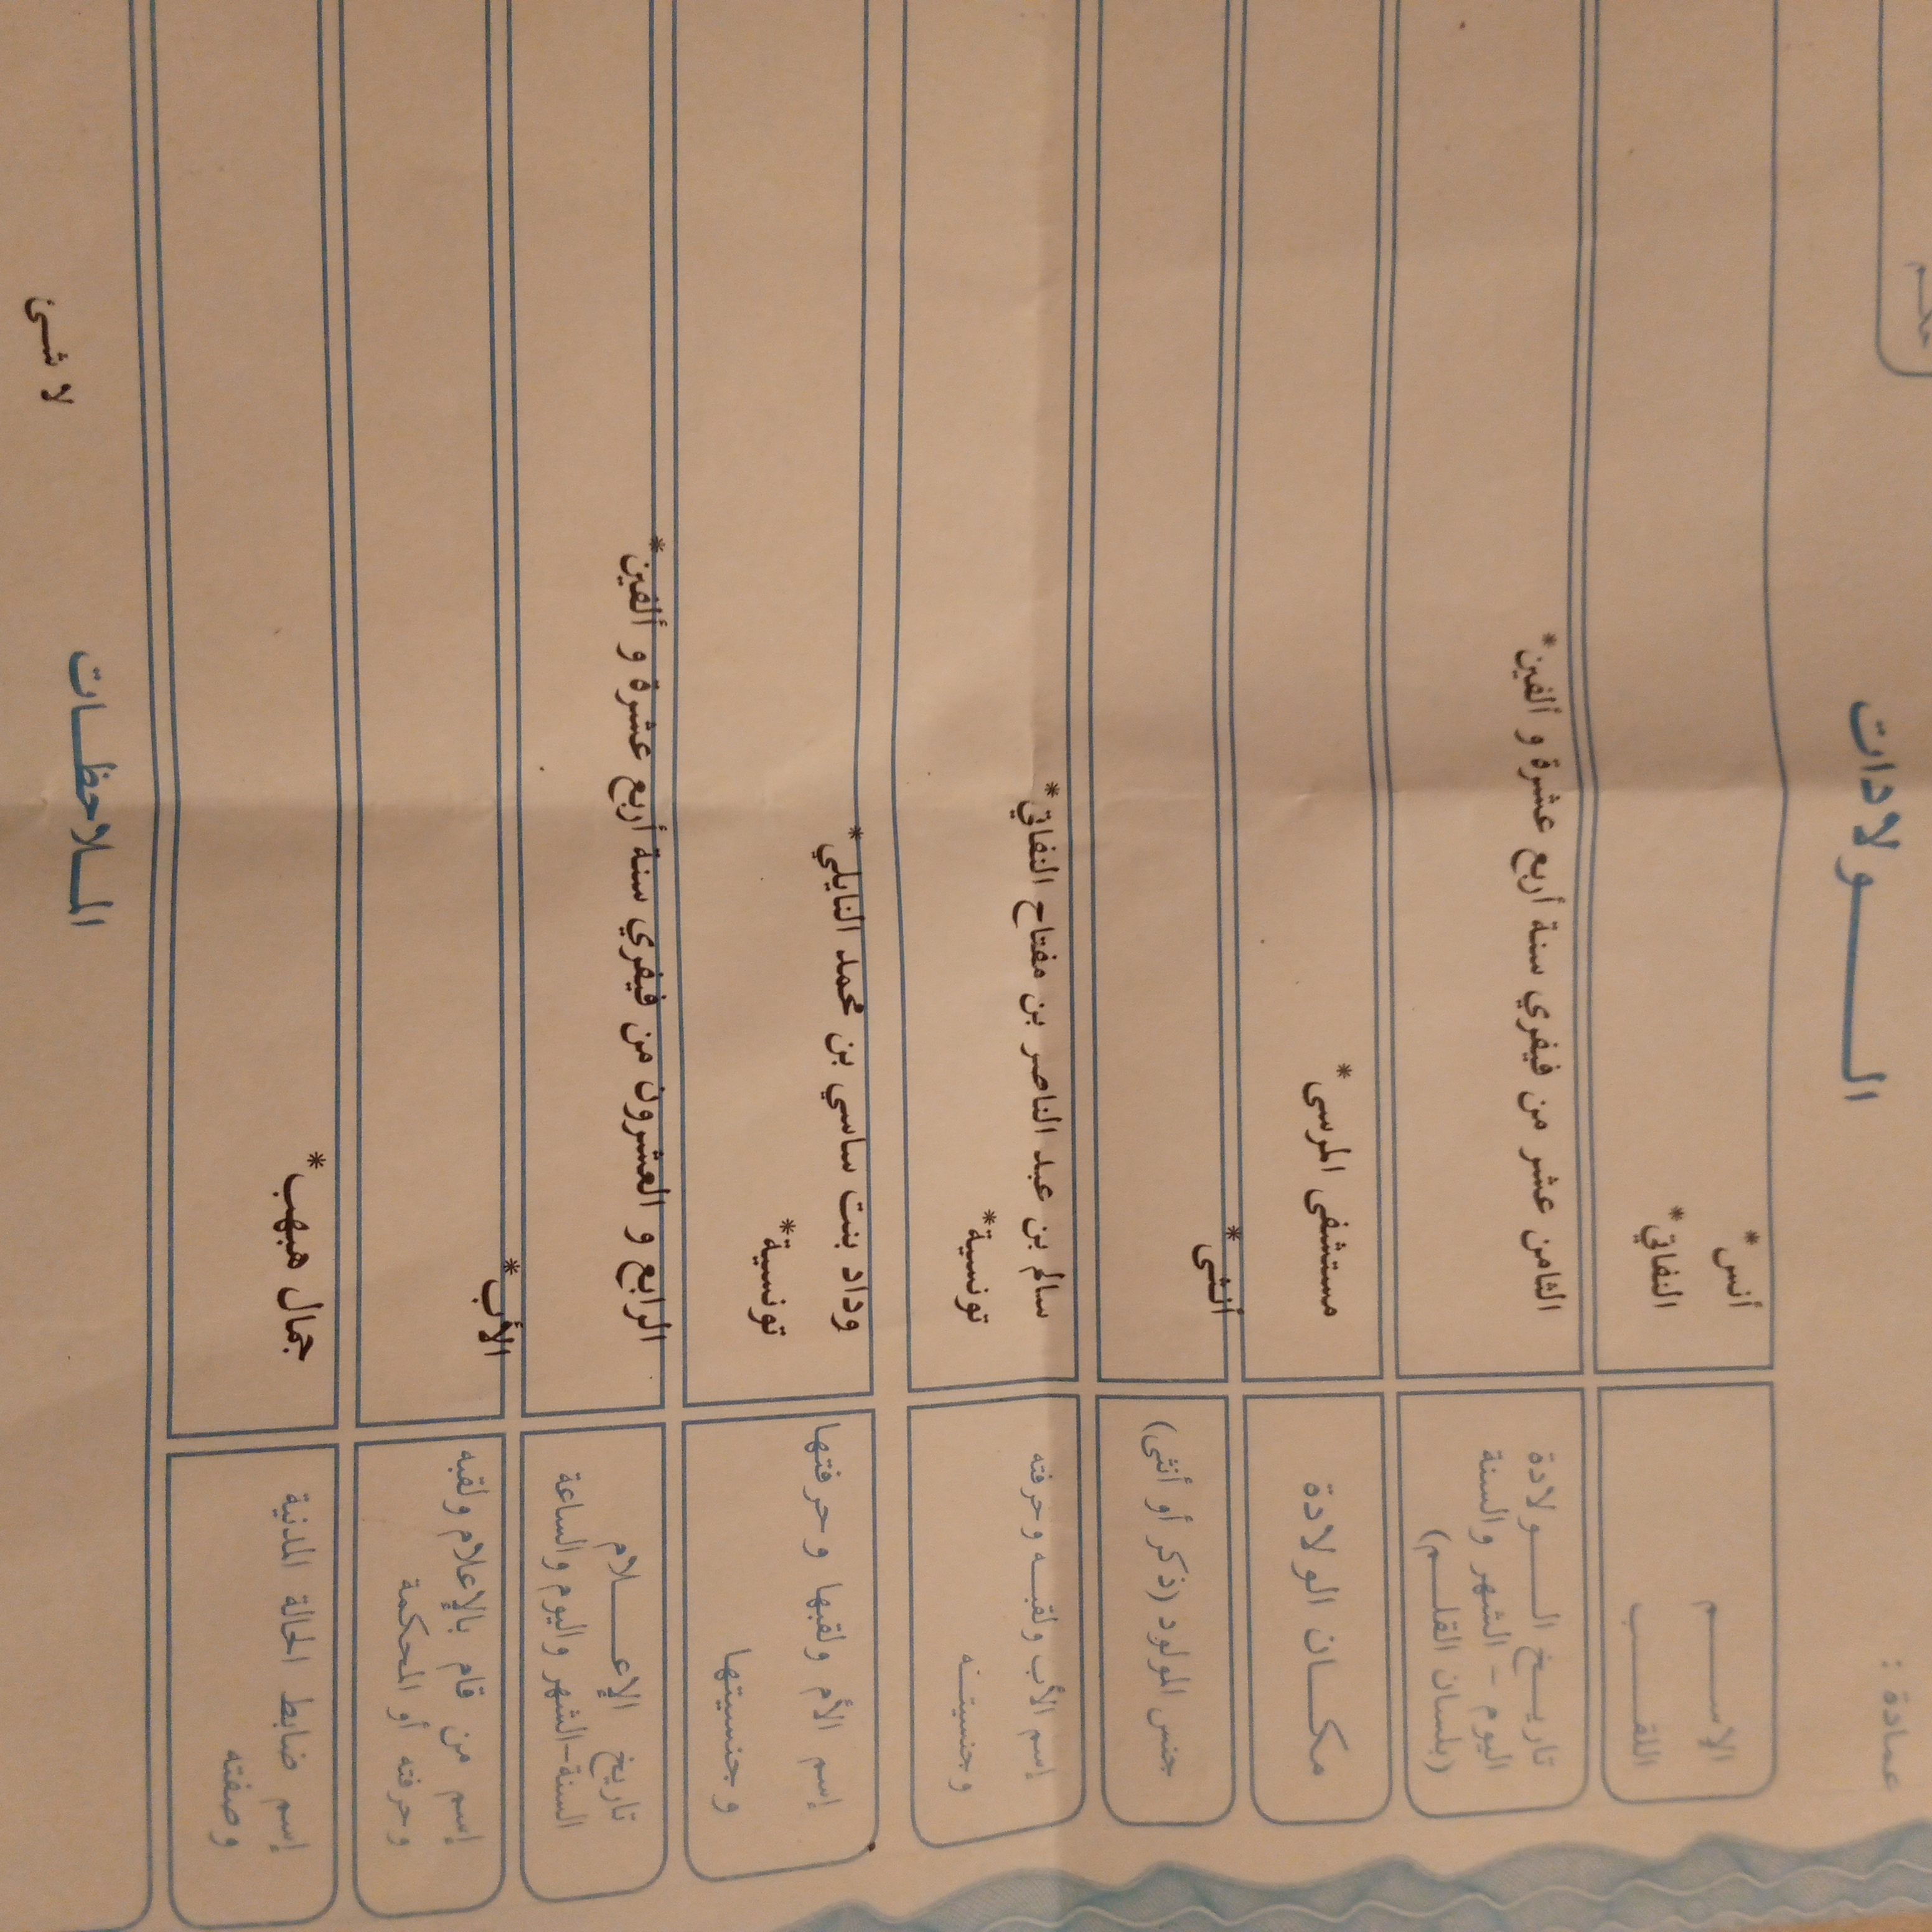 عمادة :
الـــــــولادات
الإســـــم
أنس*
اللقـــــب
النفاتي*
تاريـــخ الـــــولادة
اليوم - الشهر والسنة
(بلسان القلـــم)
الثامن عشر من فيفري سنة أربع عشرة و ألفين*
مكـــان الولادة
مستشفى المرسى*
جنس المولود (ذكر أو أنثى)
أنثى*
إسم الأب ولقبـــه وحرفته
وجنسيتـــه
سالم بن عبد الناصر بن مفتاح النفاتي*
تونسية*
إسم الأم ولقبها وحرفتها
وجنسيتها
وداد بنت ساسي بن محمد النايلي*
تونسية*
تاريخ الإعـــــلام
السنة-الشهر واليوم والساعة
الرابع و العشرون من فيفري سنة أربع عشرة و ألفين*
إسم من قام بالإعلام ولقبه
وحرفته أو المحكمة
الأب*
إسم ضابط الحالة المدنية
وصفته
جمال هبهب*
المـلاحظـــات
لا شـئ